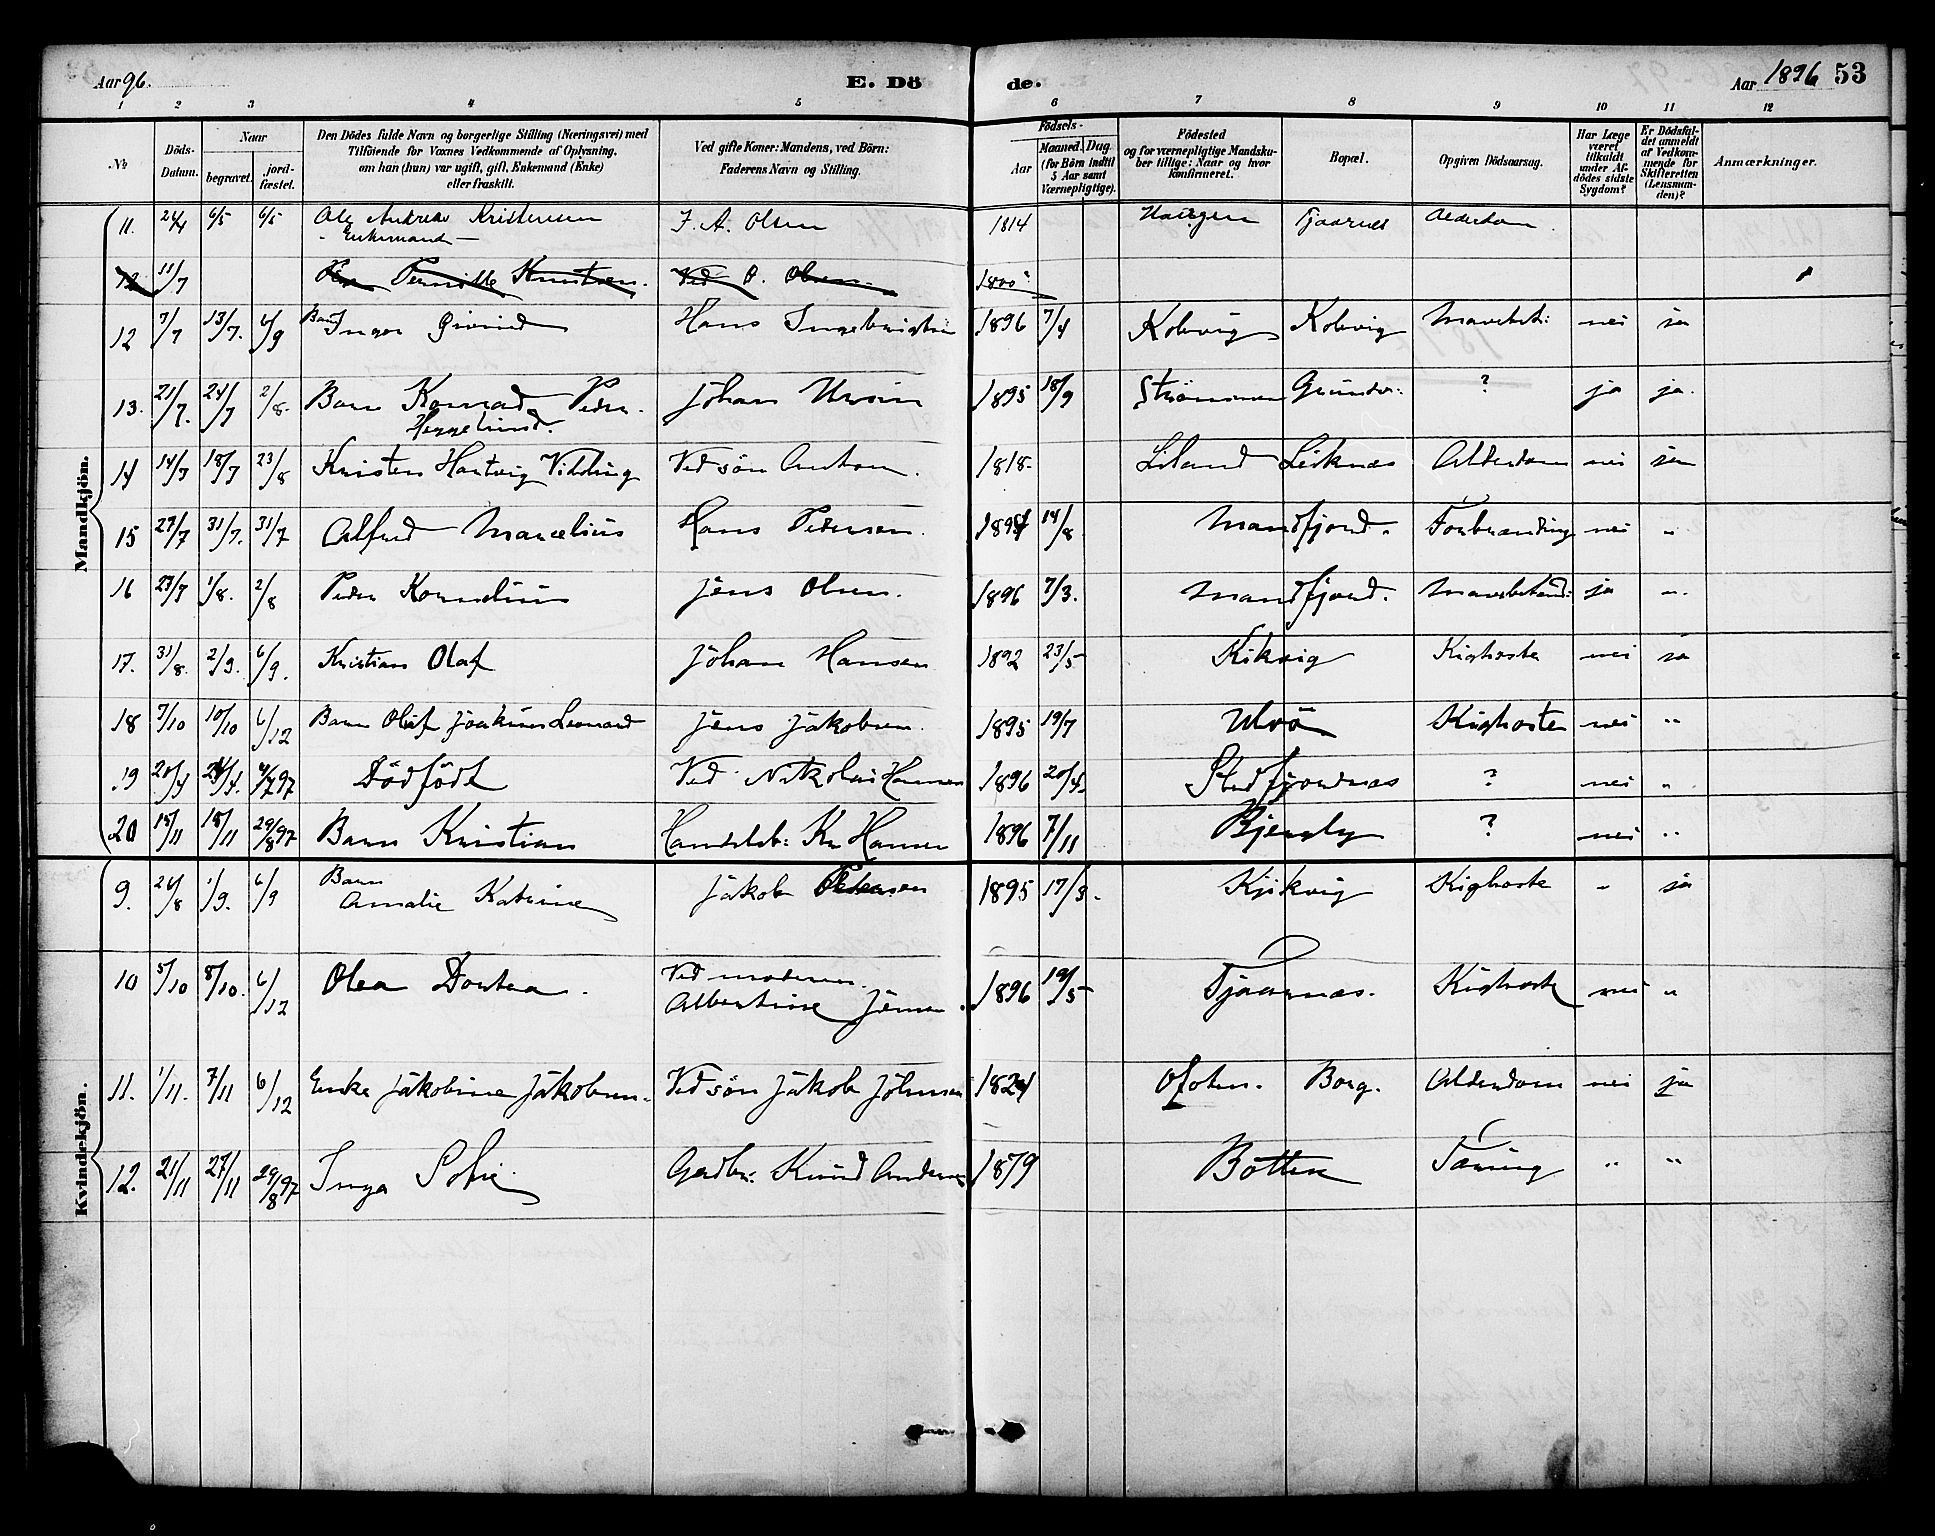 Aar 96. E. Dö de. Aar 1896 53
1 2 3 4 5 6 7 8 9 10 11 12
No
Döds-Datum.
Naar
begravet. jord-fæstet.
Den Dödes fulde Navn og borgerlige Stilling (Næringsvei) med
Tilföiende for Voxnes Vedkommende af Oplysning,
om han (hun) var ugift, gift, Enkemand (Enke)
eller fraskilt.
Ved gifte Koner: Mandens, ved Börn:
Faderens Navn og Stilling.
Födsels-
Aar Maaned. Dag
(for Börn indtil
5 Aar samt
Værnepligtige).
Födested
og for værnepligtige Mandsku-
ber tillige: Naar og hvor
konfirmeret.
Bopæl.
Opgiven Dödsaarsag.
Har Læge
været
tilkaldt
under Af-
dödes sidste
Sygdom?
Er Dödsfal-
det anmeldt
af Vedkom-
mende for
Skifteretten
(Lensman-
den)?
Anmærkninger.
Mandkjön.
11. 24/4 6/5 6/5 Ole Andreas Kristensen J. A. Olsen 1814 Tjaarnes Alderdom
- Enkemand -
12 11/7 Pernille Knutsen. Ved O. Olsen 1800
12 7/7 13/7. 6/9 Barn Inga Hans Ingebrigtsen 1896 7/4 Kobvig Kobvig nei ja
13. 21/7. 24/7 2/8. Barn Konrad Peder Johan 1895 18/9 Strømmen ? ja ja.
Heggelund.
14 14/7 18/7 23/8 Kristen Hartvig Ved søn Anton. 1818. Liland Leiknes Alderdom nei ja
15 27/7 31/7. 31/7 Alfred Marcelius Hans Pedersen. 14/8 Mandfjord. Forbrænding nei "
16 23/7 1/8. 2/8 Peder Kornelius Jens Olsen. 1896 7/3. Mandfjord. ja "
17. 31/8. 2/9. 6/9. Kristian Olaf Johan Hansen 1892 23/5 Kikvig Kighoste nei ja
18 7/10 10/10 6/12 Barn Olaf Joakim Leonard Jens Jakobsen. 1895 19/7 Ulvö Kighoste nei "
19 20/4 24/4. 4/7 97 Dödfödt Ved Nikolai Hansen 1896 20/4. ? nei "
20 15/11 18/11 29/8 97 Barn Kristian Handelsb: Kr Hansen 1896 7/11 ? nei "
Kvindekjön.
9. 26/8 1/9. 6/9 Barn
Amalie Katrine Jakob Petersen 1895 17/3. Kjikvig Kighoste " ja
10 5/10 8/10. 6/12 Olea Dortea. Ved moderen
Albertine Jensen. 1896 19/5 Tjaarnes. Kighoste nei "
11. 1/11. 7/11 6/12 Enke Jakobine Jakobsen. Ved søn Jakob Johnsen 1824 Ofoten. Borg. Alderdom nei ja
12. 21/11 27/11 29/8 97 Inga Sofie Gaardbr: Knud Andersen 1879 Botten Tæring " "